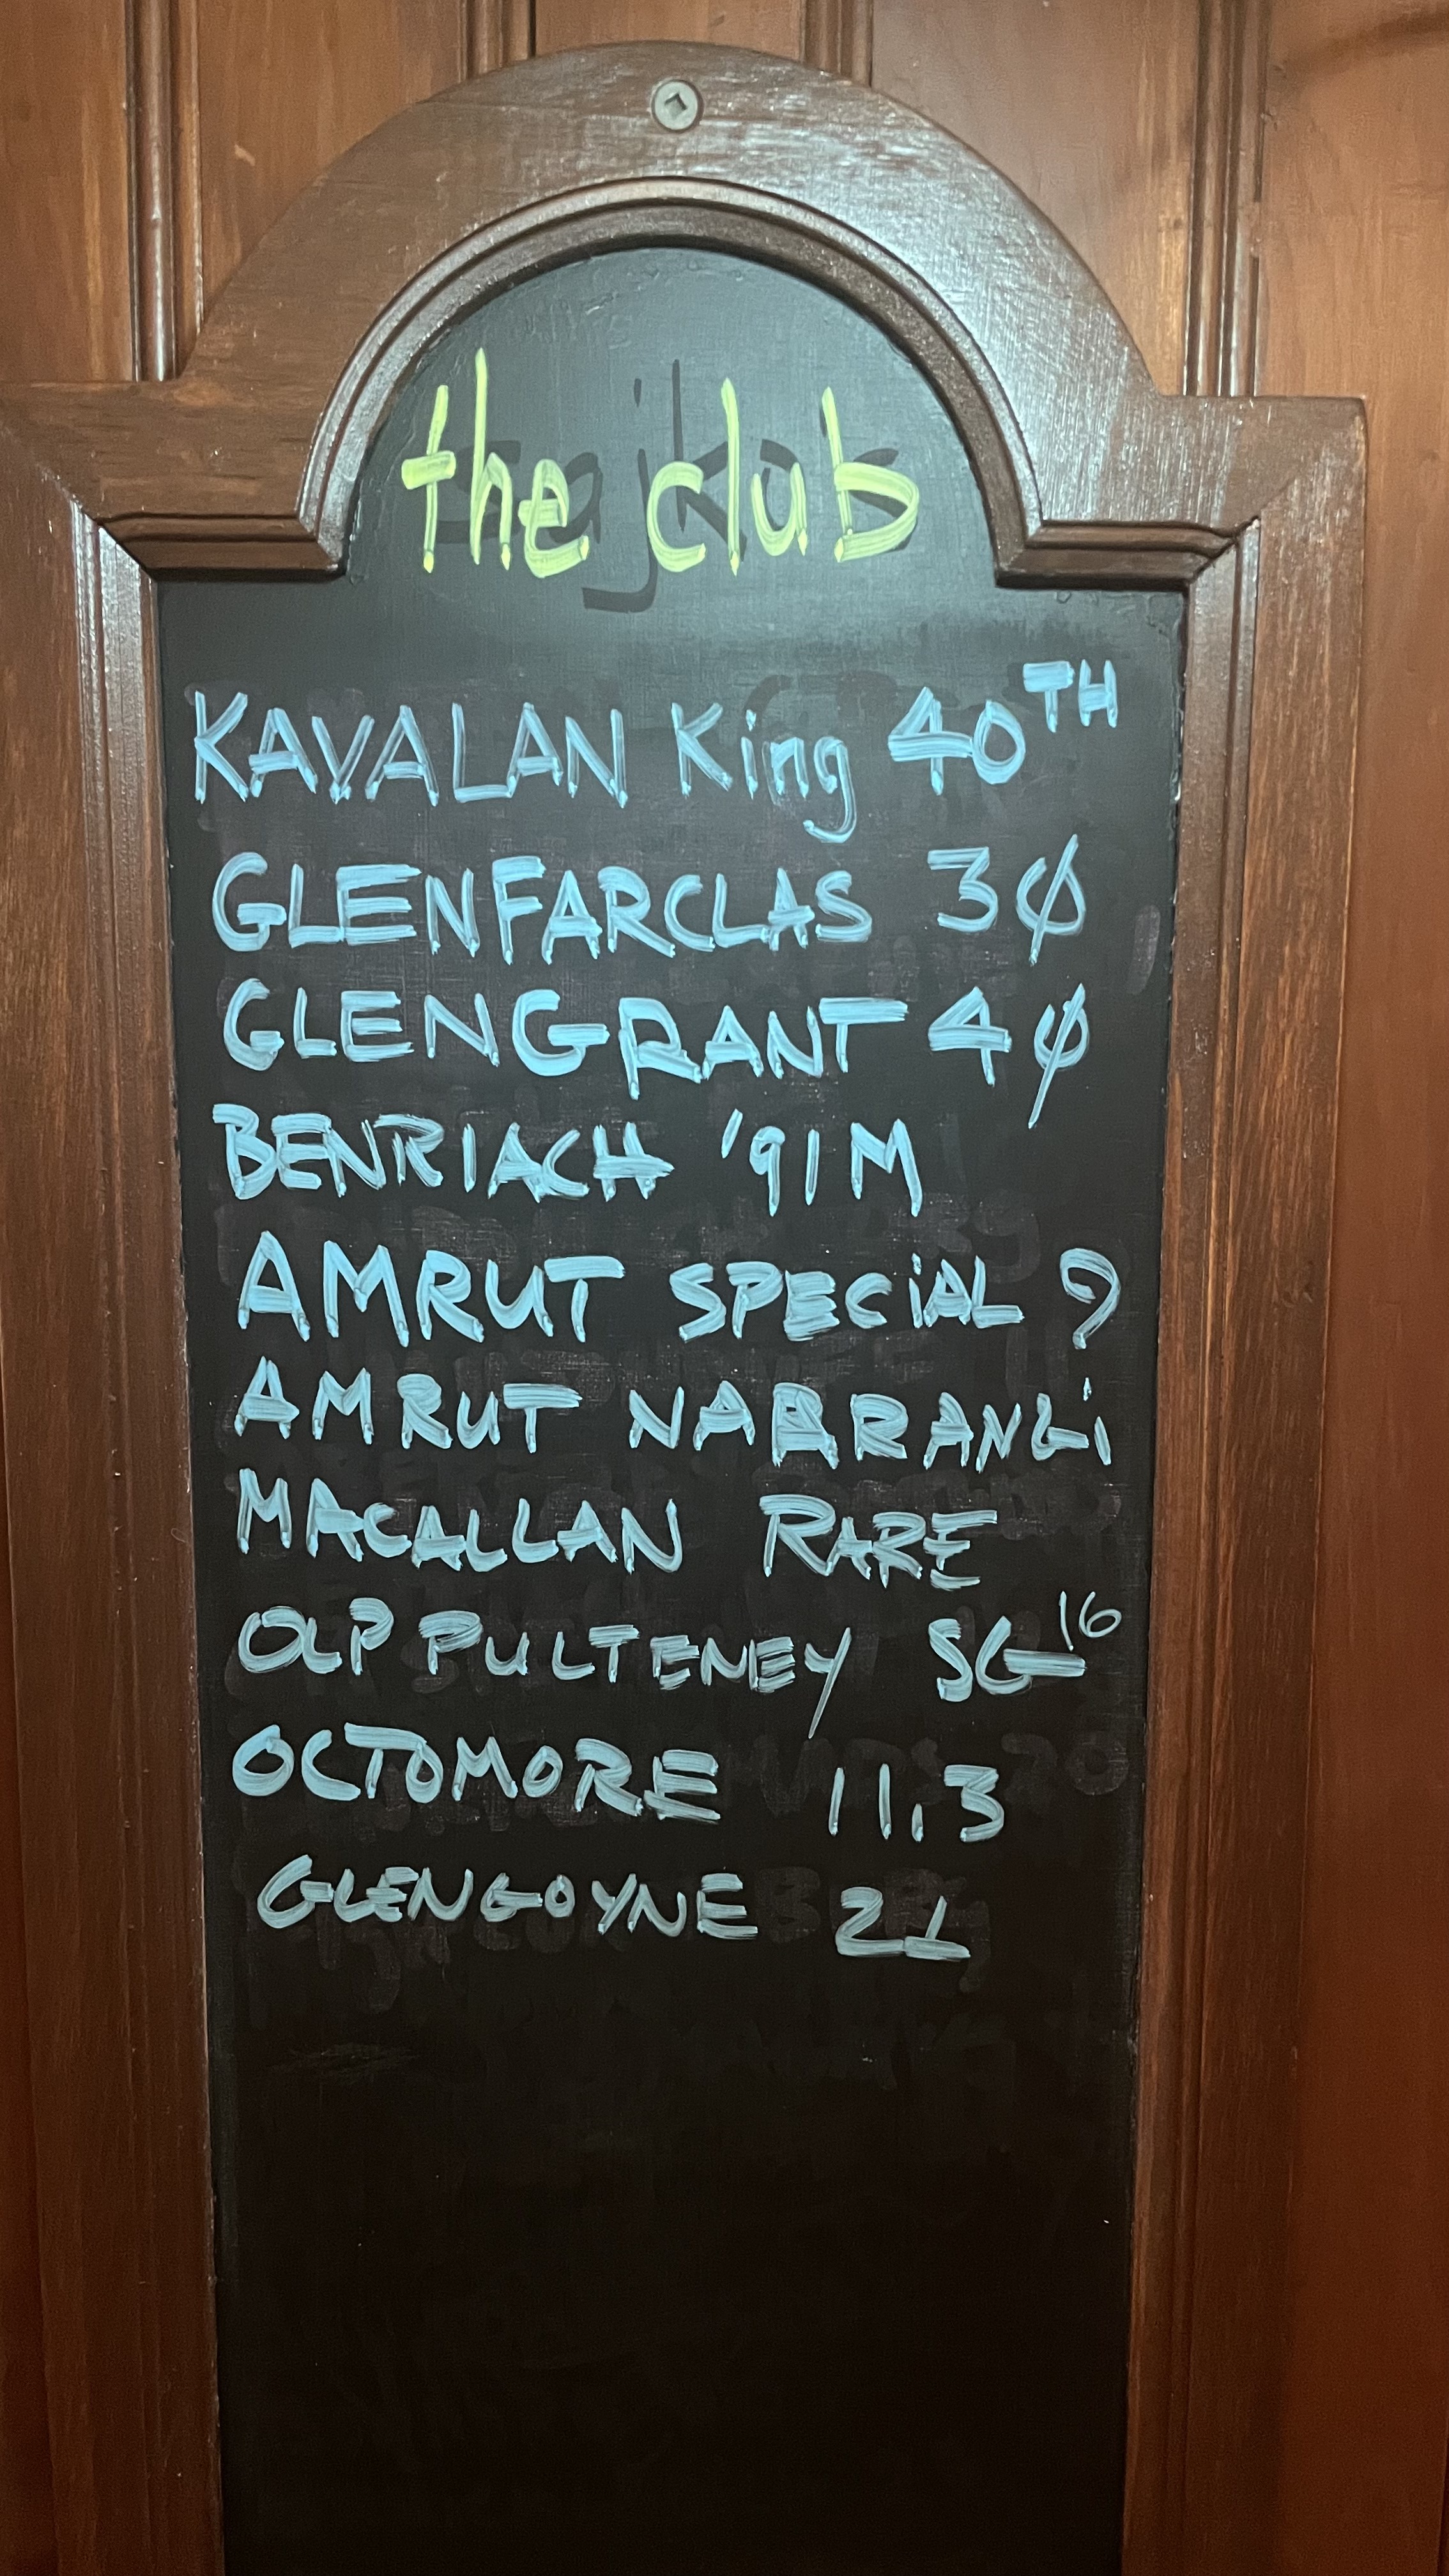 the club
KAVALAN King 40TH
GLENFARCLAS 30
GLENGRANT 40
BENRIACH '91 M
AMRUT SPECiAL ?
AMRUT NARRANGi
MACALLAN RARE
OLP PULTENEY SG 16
OCTOMORE 11.3
GLENGOYNE 21